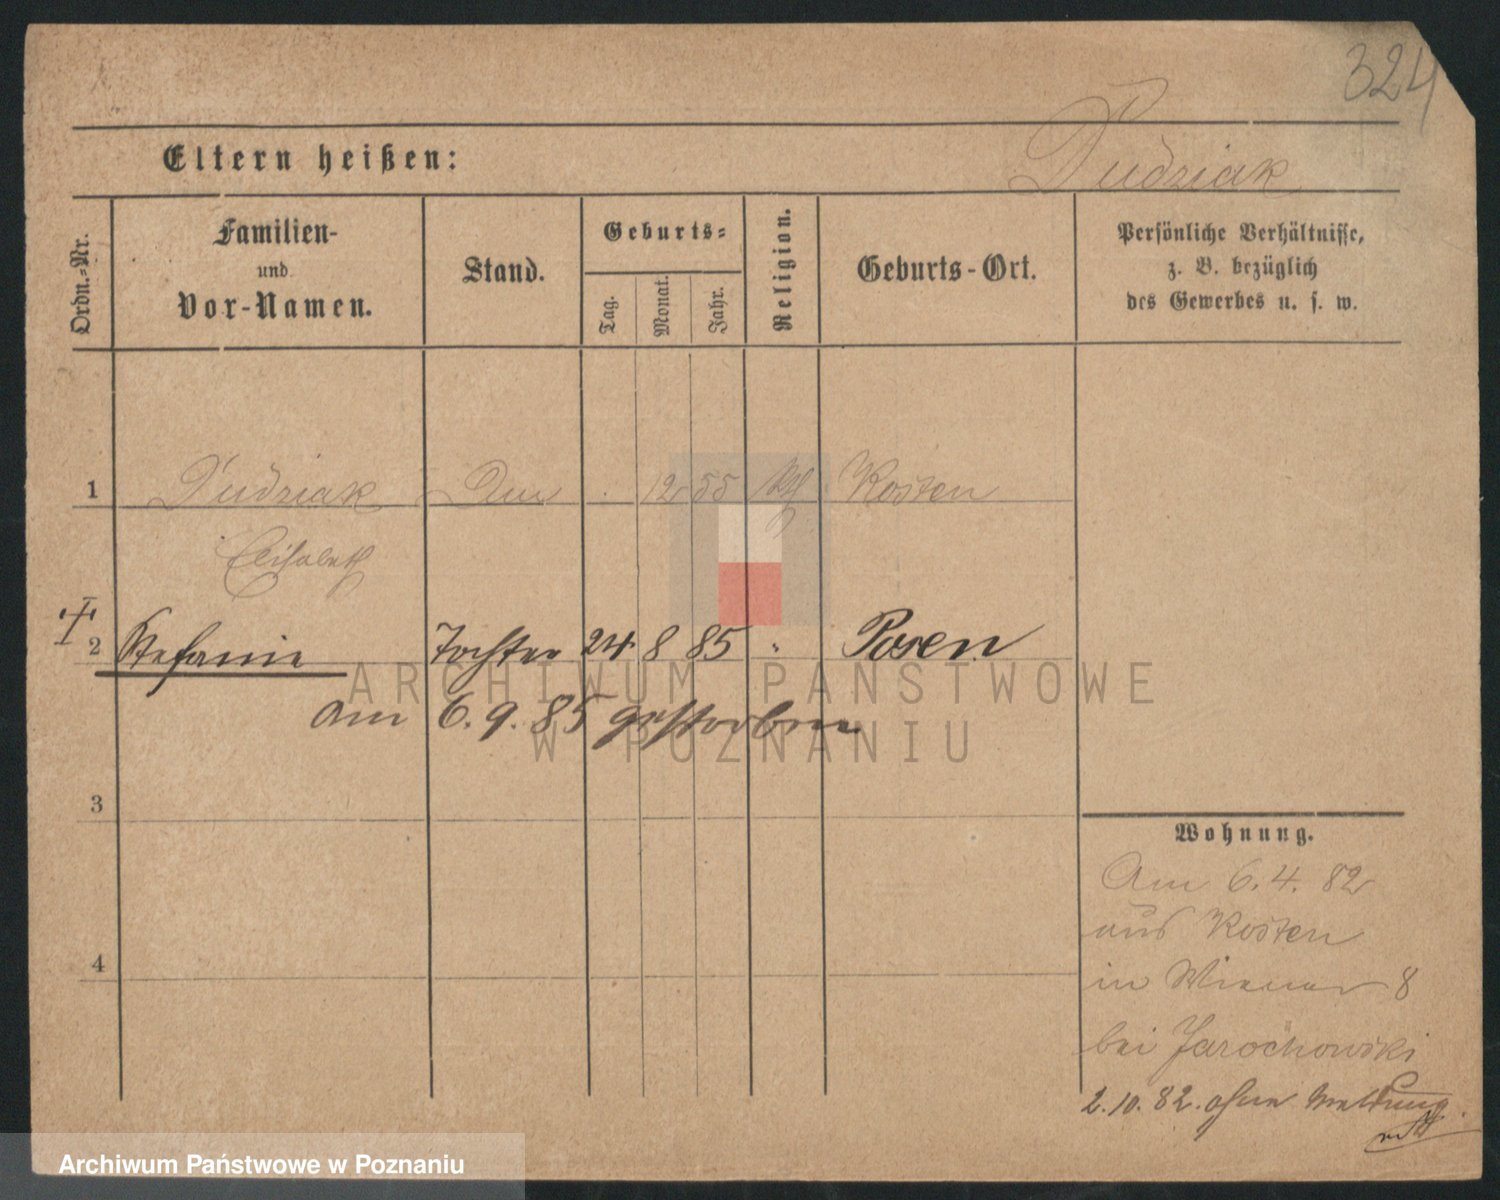 324
Eltern heißen:
Dudziak
Ordn.-Nr.
Familien-
und
Vor-Namen.
Stand.
Geburts-
Tag.
Monat.
Jahr.
Religion.
Geburts-Ort.
Persönliche Verhältnisse,
z. B. bezüglich
des Gewerbes u. s. w.
1 Dudziak 12 55 Kosten
Elisabeth
2 Stefanie Tochter 24 8 85 " Posen
am 6. 9. 85 gestorben
ARCHIWUM PAŃSTWOWE
W POZNANIU
3
Wohnung.
Am 6. 4. 82
aus Kosten
4
in Wiener 8
bei Jarochowski
2. 10. 82. ohne Meldung
Archiwum Państwowe w Poznaniu